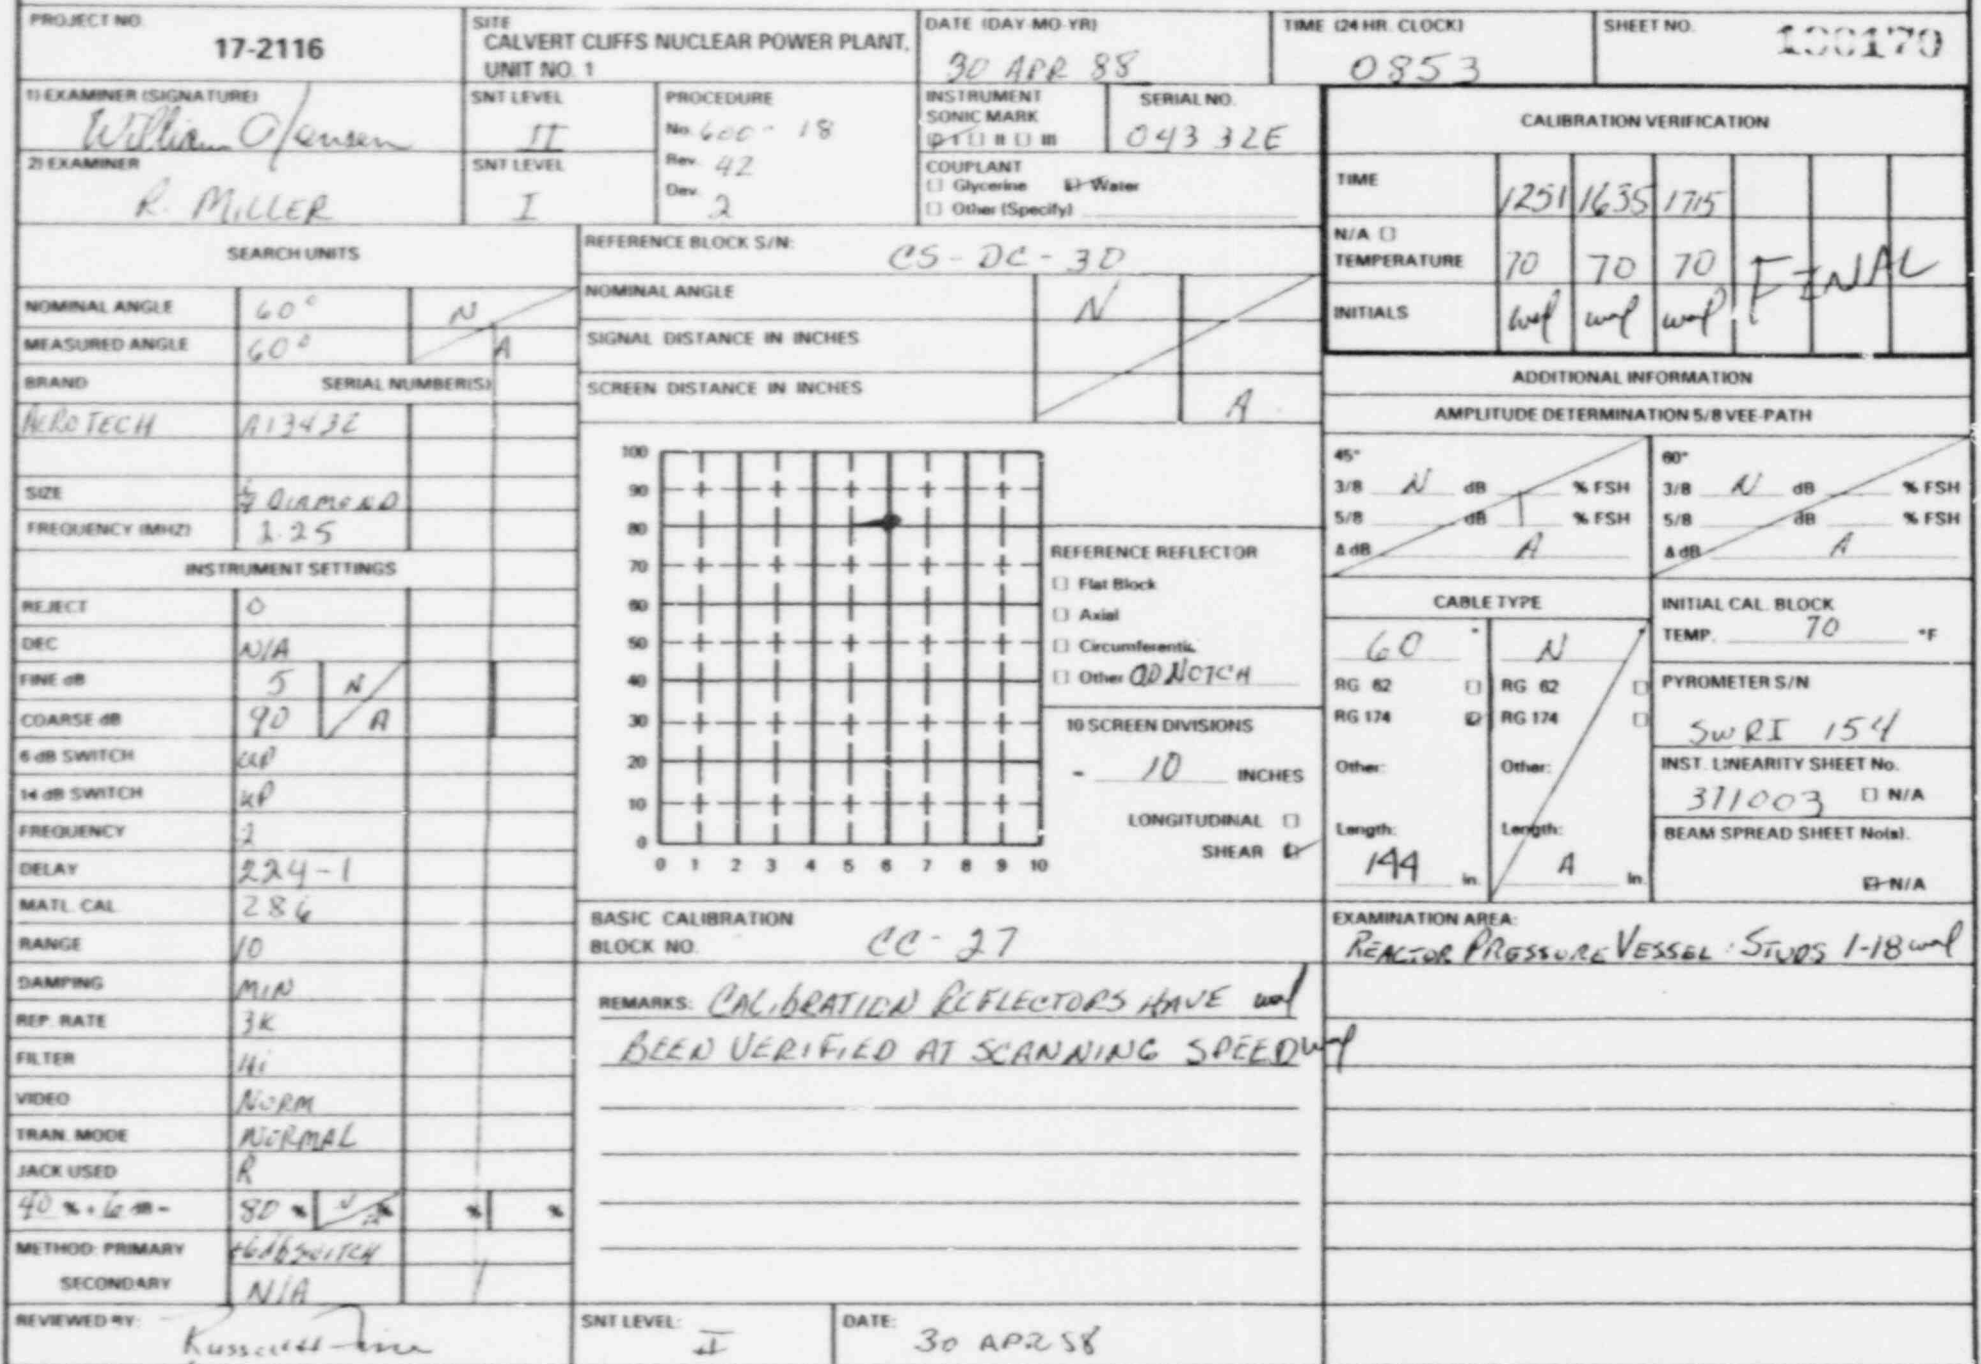 PROJECT NO. 17-2116
SITE CALVERT CLIFFS NUCLEAR POWER PLANT, UNIT NO. 1
DATE (DAY-MO-YR) 30 APR 88
TIME (24 HR. CLOCK) 0853
SHEET NO. 100170
1) EXAMINER (SIGNATURE) William A Jensen
SNT LEVEL II
2) EXAMINER R. MILLER
SNT LEVEL I
PROCEDURE
No. 600-18
Rev. 42
Dev. 2
INSTRUMENT
SONIC MARK
I II III
SERIAL NO. 04332E
COUPLANT
Glycerine Water
Other (Specify)
CALIBRATION VERIFICATION
TIME 1251 1635 1715
N/A
TEMPERATURE 70 70 70 FINAL
INITIALS waf waf waf
SEARCH UNITS
NOMINAL ANGLE 60° N
MEASURED ANGLE 60° A
BRAND SERIAL NUMBER(S)
AEROTECH A13432
SIZE DIAMOND
FREQUENCY (MHZ) 2.25
INSTRUMENT SETTINGS
REJECT 0
DEC N/A
FINE dB 5 N
COARSE dB 90 A
6 dB SWITCH UP
14 dB SWITCH UP
FREQUENCY 2
DELAY 224-1
MATL. CAL. 286
RANGE 10
DAMPING MIN
REP. RATE 3K
FILTER Hi
VIDEO NORM
TRAN. MODE NORMAL
JACK USED R
40 % + 6 dB = 80 % N/A % % %
METHOD: PRIMARY +6db SWITCH
SECONDARY N/A
REVIEWED BY:
REFERENCE BLOCK S/N: CS-DC-3D
NOMINAL ANGLE N
SIGNAL DISTANCE IN INCHES
SCREEN DISTANCE IN INCHES A
100
90
80
70
60
50
40
30
20
10
0
0 1 2 3 4 5 6 7 8 9 10
REFERENCE REFLECTOR
Flat Block
Axial
Circumferentia
Other OD NOTCH
10 SCREEN DIVISIONS
= 10 INCHES
LONGITUDINAL
SHEAR
BASIC CALIBRATION
BLOCK NO. CC-27
REMARKS: CALIBRATION REFLECTORS HAVE waf
BEEN VERIFIED AT SCANNING SPEED waf
SNT LEVEL: II
DATE: 30 APR 88
ADDITIONAL INFORMATION
AMPLITUDE DETERMINATION 5/8 VEE-PATH
45° 60°
3/8 N dB % FSH 3/8 N dB % FSH
5/8 dB % FSH 5/8 dB % FSH
Δ dB A Δ dB A
CABLE TYPE
60 ° N
RG 62 RG 62
RG 174 RG 174
Other: Other:
Length: Length:
144 in. A in.
INITIAL CAL. BLOCK
TEMP. 70 °F
PYROMETER S/N
SWRI 154
INST. LINEARITY SHEET No.
311003 N/A
BEAM SPREAD SHEET No(s).
N/A
EXAMINATION AREA:
REACTOR PRESSURE VESSEL: STUDS 1-18 waf